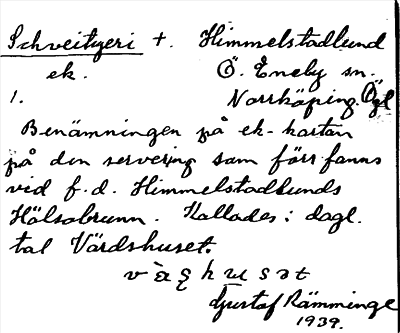 Schveitzeri t. Himmelstadlund
ek. Ö. Eneby sn.
1. Norrköping. Ögl
Benämningen på ek-kartan
på den servering som förr fanns
vid f.d. Himmelstadlunds
Hälsobrunn. Kallades i dagl.
tal Värdshuset.
Gustaf Rämminge
1939.